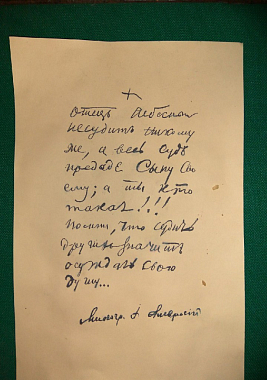 Отецъ Небесный
несудитъ никому
же, а весь судъ
предаде Сыну Сво
ему; а ты кто
такая!!!
Помни, что судить
другихъ значитъ
осуждать свою
душу...